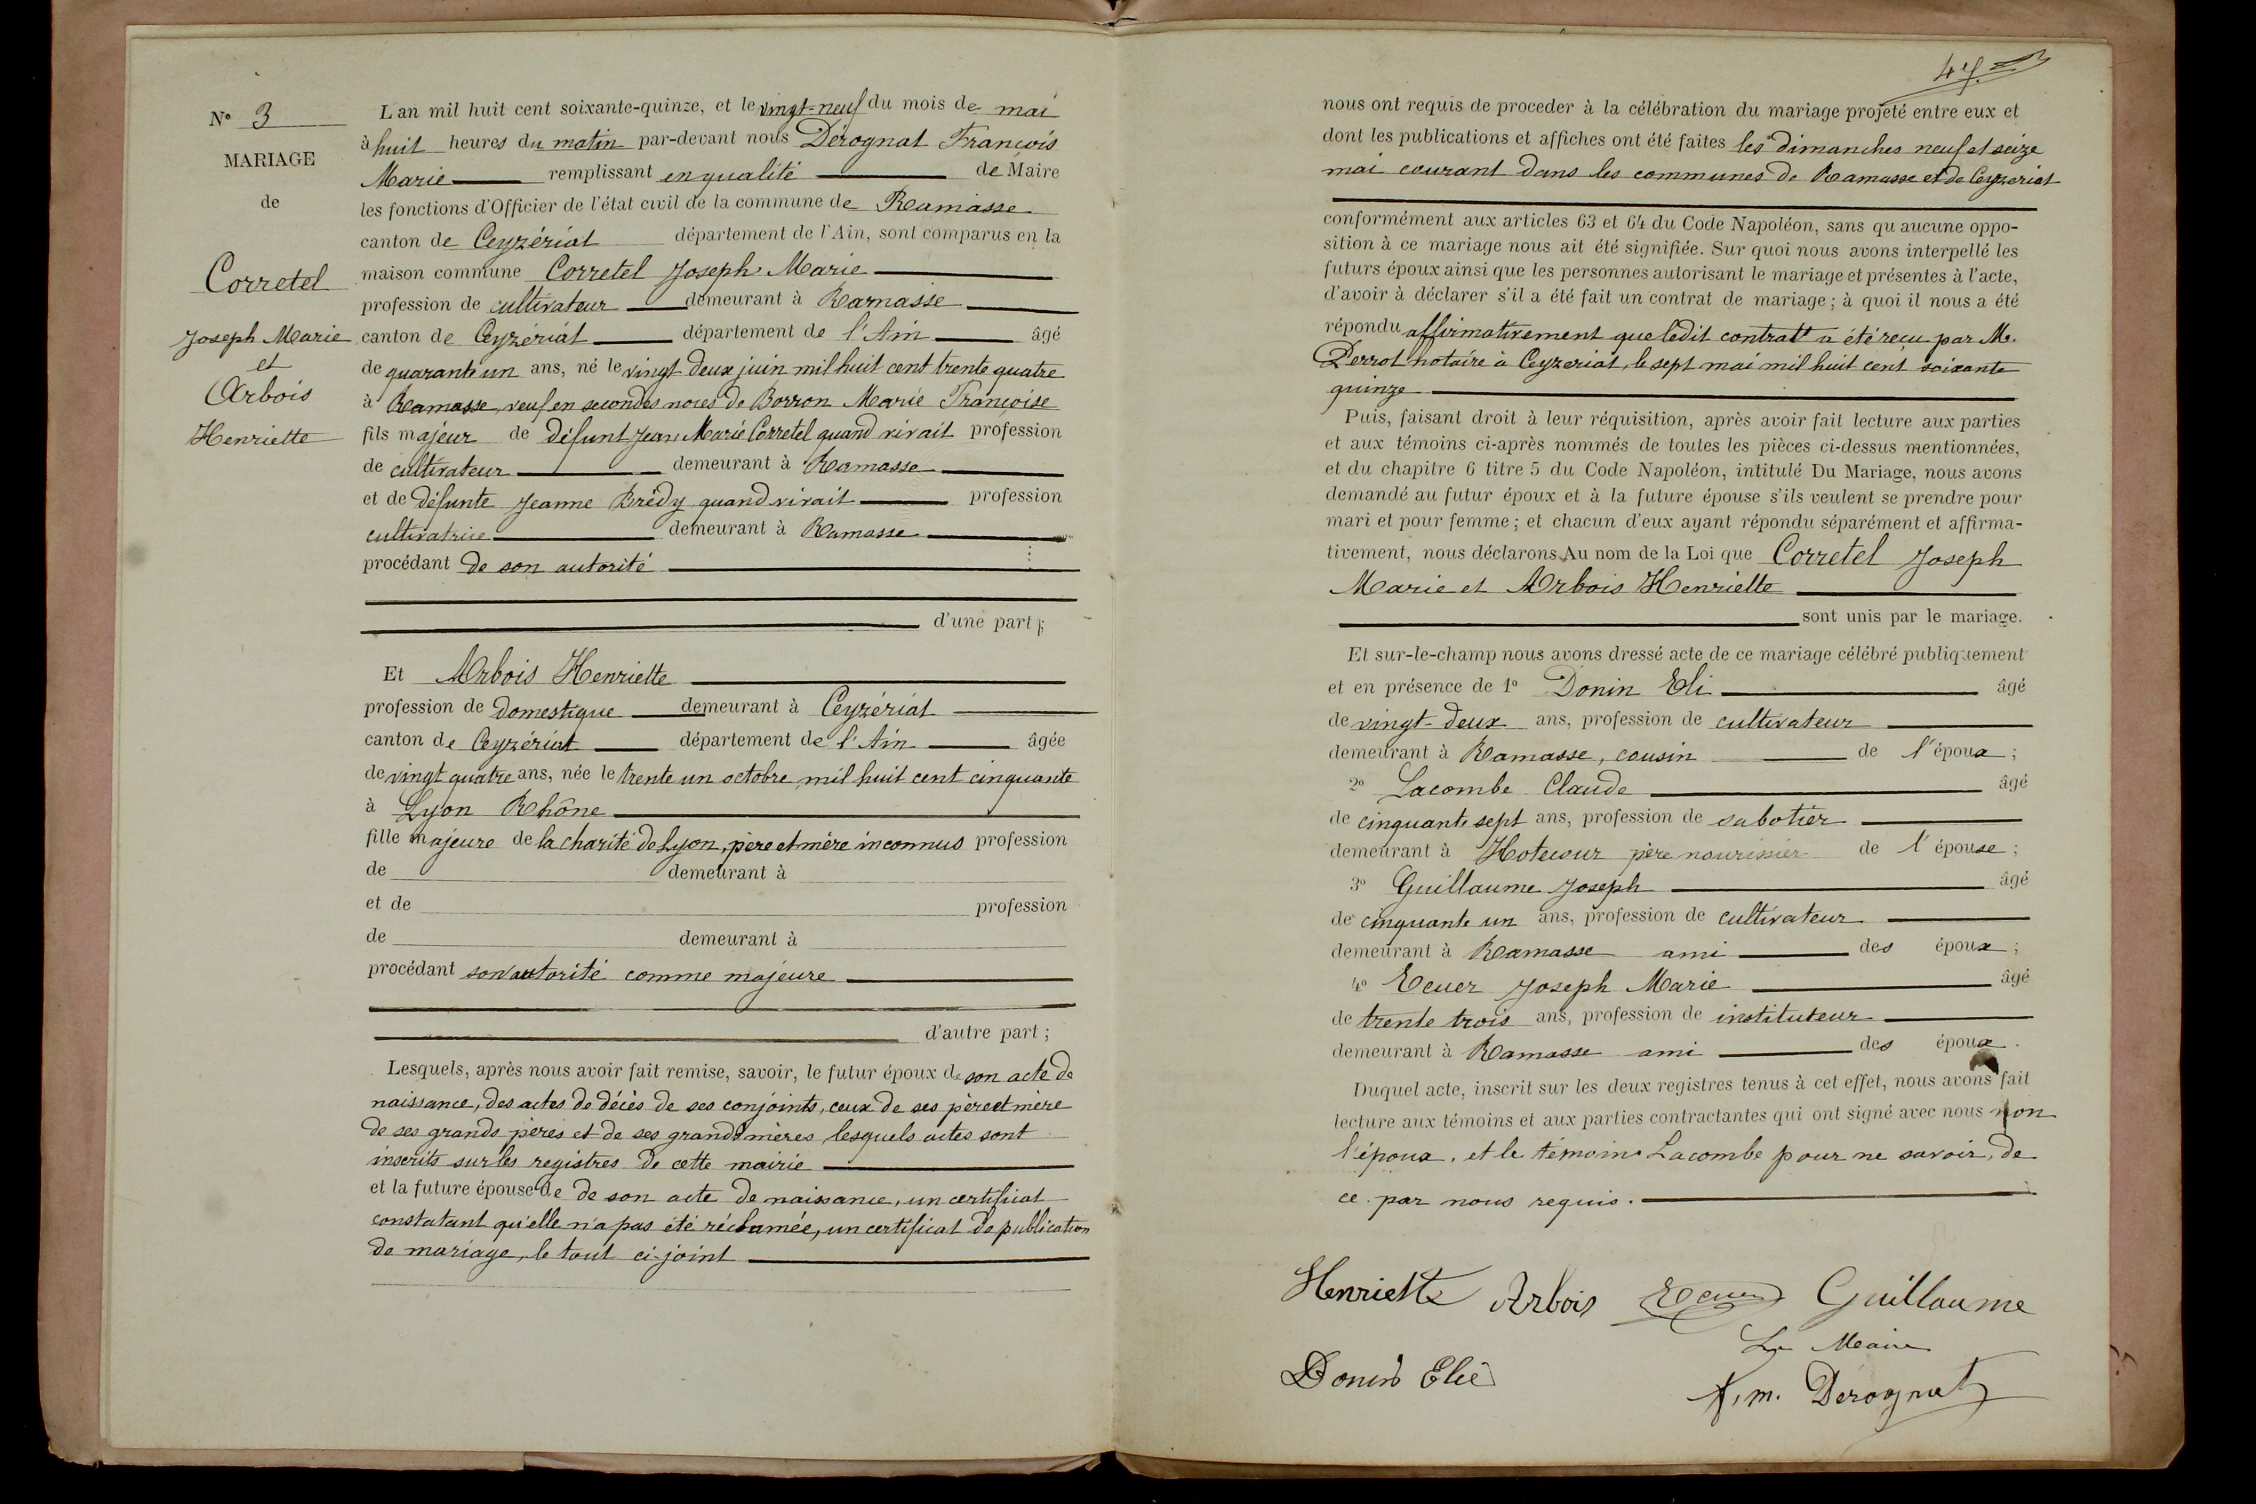 N° 3
MARIAGE
de
Corretel
Joseph Marie
et
Arbois
Henriette
L'an mil huit cent soixante-quinze, et le vingt-neuf du mois de mai
à huit heures du matin par-devant nous Derognat François
Marie remplissant en qualité de Maire
les fonctions d'Officier de l'état civil de la commune de Ramasse
canton de Ceyzériat département de l'Ain, sont comparus en la
maison commune Corretel Joseph Marie
profession de cultivateur demeurant à Ramasse
canton de Ceyzériat département de l'Ain âgé
de quarante un ans, né le vingt deux juin mil huit cent trente quatre
à Ramasse, veuf en secondes noces de Borron Marie Françoise
fils majeur de défunt Jean Marie Corretel quand vivait profession
de cultivateur demeurant à Ramasse
et de défunte Jeanne Brédy quand vivait profession
cultivatrice demeurant à Ramasse
procédant de son autorité
d'une part ;
Et Arbois Henriette
profession de domestique demeurant à Ceyzériat
canton de Ceyzériat département de l'Ain âgée
de vingt quatre ans, née le trente un octobre mil huit cent cinquante
à Lyon Rhône
fille majeure de la charité de Lyon, père et mère inconnus profession
de demeurant à
et de profession
de demeurant à
procédant son autorité comme majeure
d'autre part ;
Lesquels, après nous avoir fait remise, savoir, le futur époux de son acte de
naissance, des actes de décès de ses conjoints, ceux de ses père et mère
de ses grands pères et de ses grands mères, lesquels actes sont
inscrits sur les registres de cette mairie
et la future épouse de de son acte de naissance, un certificat
constatant qu'elle n'a pas été réclamée, un certificat de publication
de mariage, le tout ci-joint
nous ont requis de proceder à la célébration du mariage projeté entre eux et
dont les publications et affiches ont été faites les dimanches neuf et seize
mai courant dans les communes de Ramasse et de Ceyzeriat
conformément aux articles 63 et 64 du Code Napoléon, sans qu'aucune oppo-
sition à ce mariage nous ait été signifiée. Sur quoi nous avons interpellé les
futurs époux ainsi que les personnes autorisant le mariage et présentes à l'acte,
d'avoir à déclarer s'il a été fait un contrat de mariage ; à quoi il nous a été
répondu affirmativement que ledit contrat a été reçu par Me.
Perrot notaire à Ceyzeriat, le sept mai mil huit cent soixante
quinze
Puis, faisant droit à leur réquisition, après avoir fait lecture aux parties
et aux témoins ci-après nommés de toutes les pièces ci-dessus mentionnées,
et du chapitre 6 titre 5 du Code Napoléon, intitulé Du Mariage, nous avons
demandé au futur époux et à la future épouse s'ils veulent se prendre pour
mari et pour femme ; et chacun d'eux ayant répondu séparément et affirma-
tivement, nous déclarons Au nom de la Loi que Corretel Joseph
Marie et Arbois Henriette
sont unis par le mariage.
Et sur-le-champ nous avons dressé acte de ce mariage célébré publiquement
et en présence de 1° Donin Eli âgé
de vingt-deux ans, profession de cultivateur
demeurant à Ramasse, cousin de l'époux ;
2° Lacombe Claude âgé
de cinquante sept ans, profession de sabotier
demeurant à Hotecour père nourissier de l'épouse ;
3° Guillaume Joseph âgé
de cinquante un ans, profession de cultivateur
demeurant à Ramasse ami des époux ;
4° Ecuer Joseph Marie âgé
de trente trois ans, profession de instituteur
demeurant à Ramasse ami des époux.
Duquel acte, inscrit sur les deux registres tenus à cet effet, nous avons fait
lecture aux témoins et aux parties contractantes qui ont signé avec nous non
l'époux, et le témoin Lacombe pour ne savoir, de
ce par nous requis.
Henriette Arbois Ecuer Guillaume
Le Maire
Donin Elie
f. m. Derognat